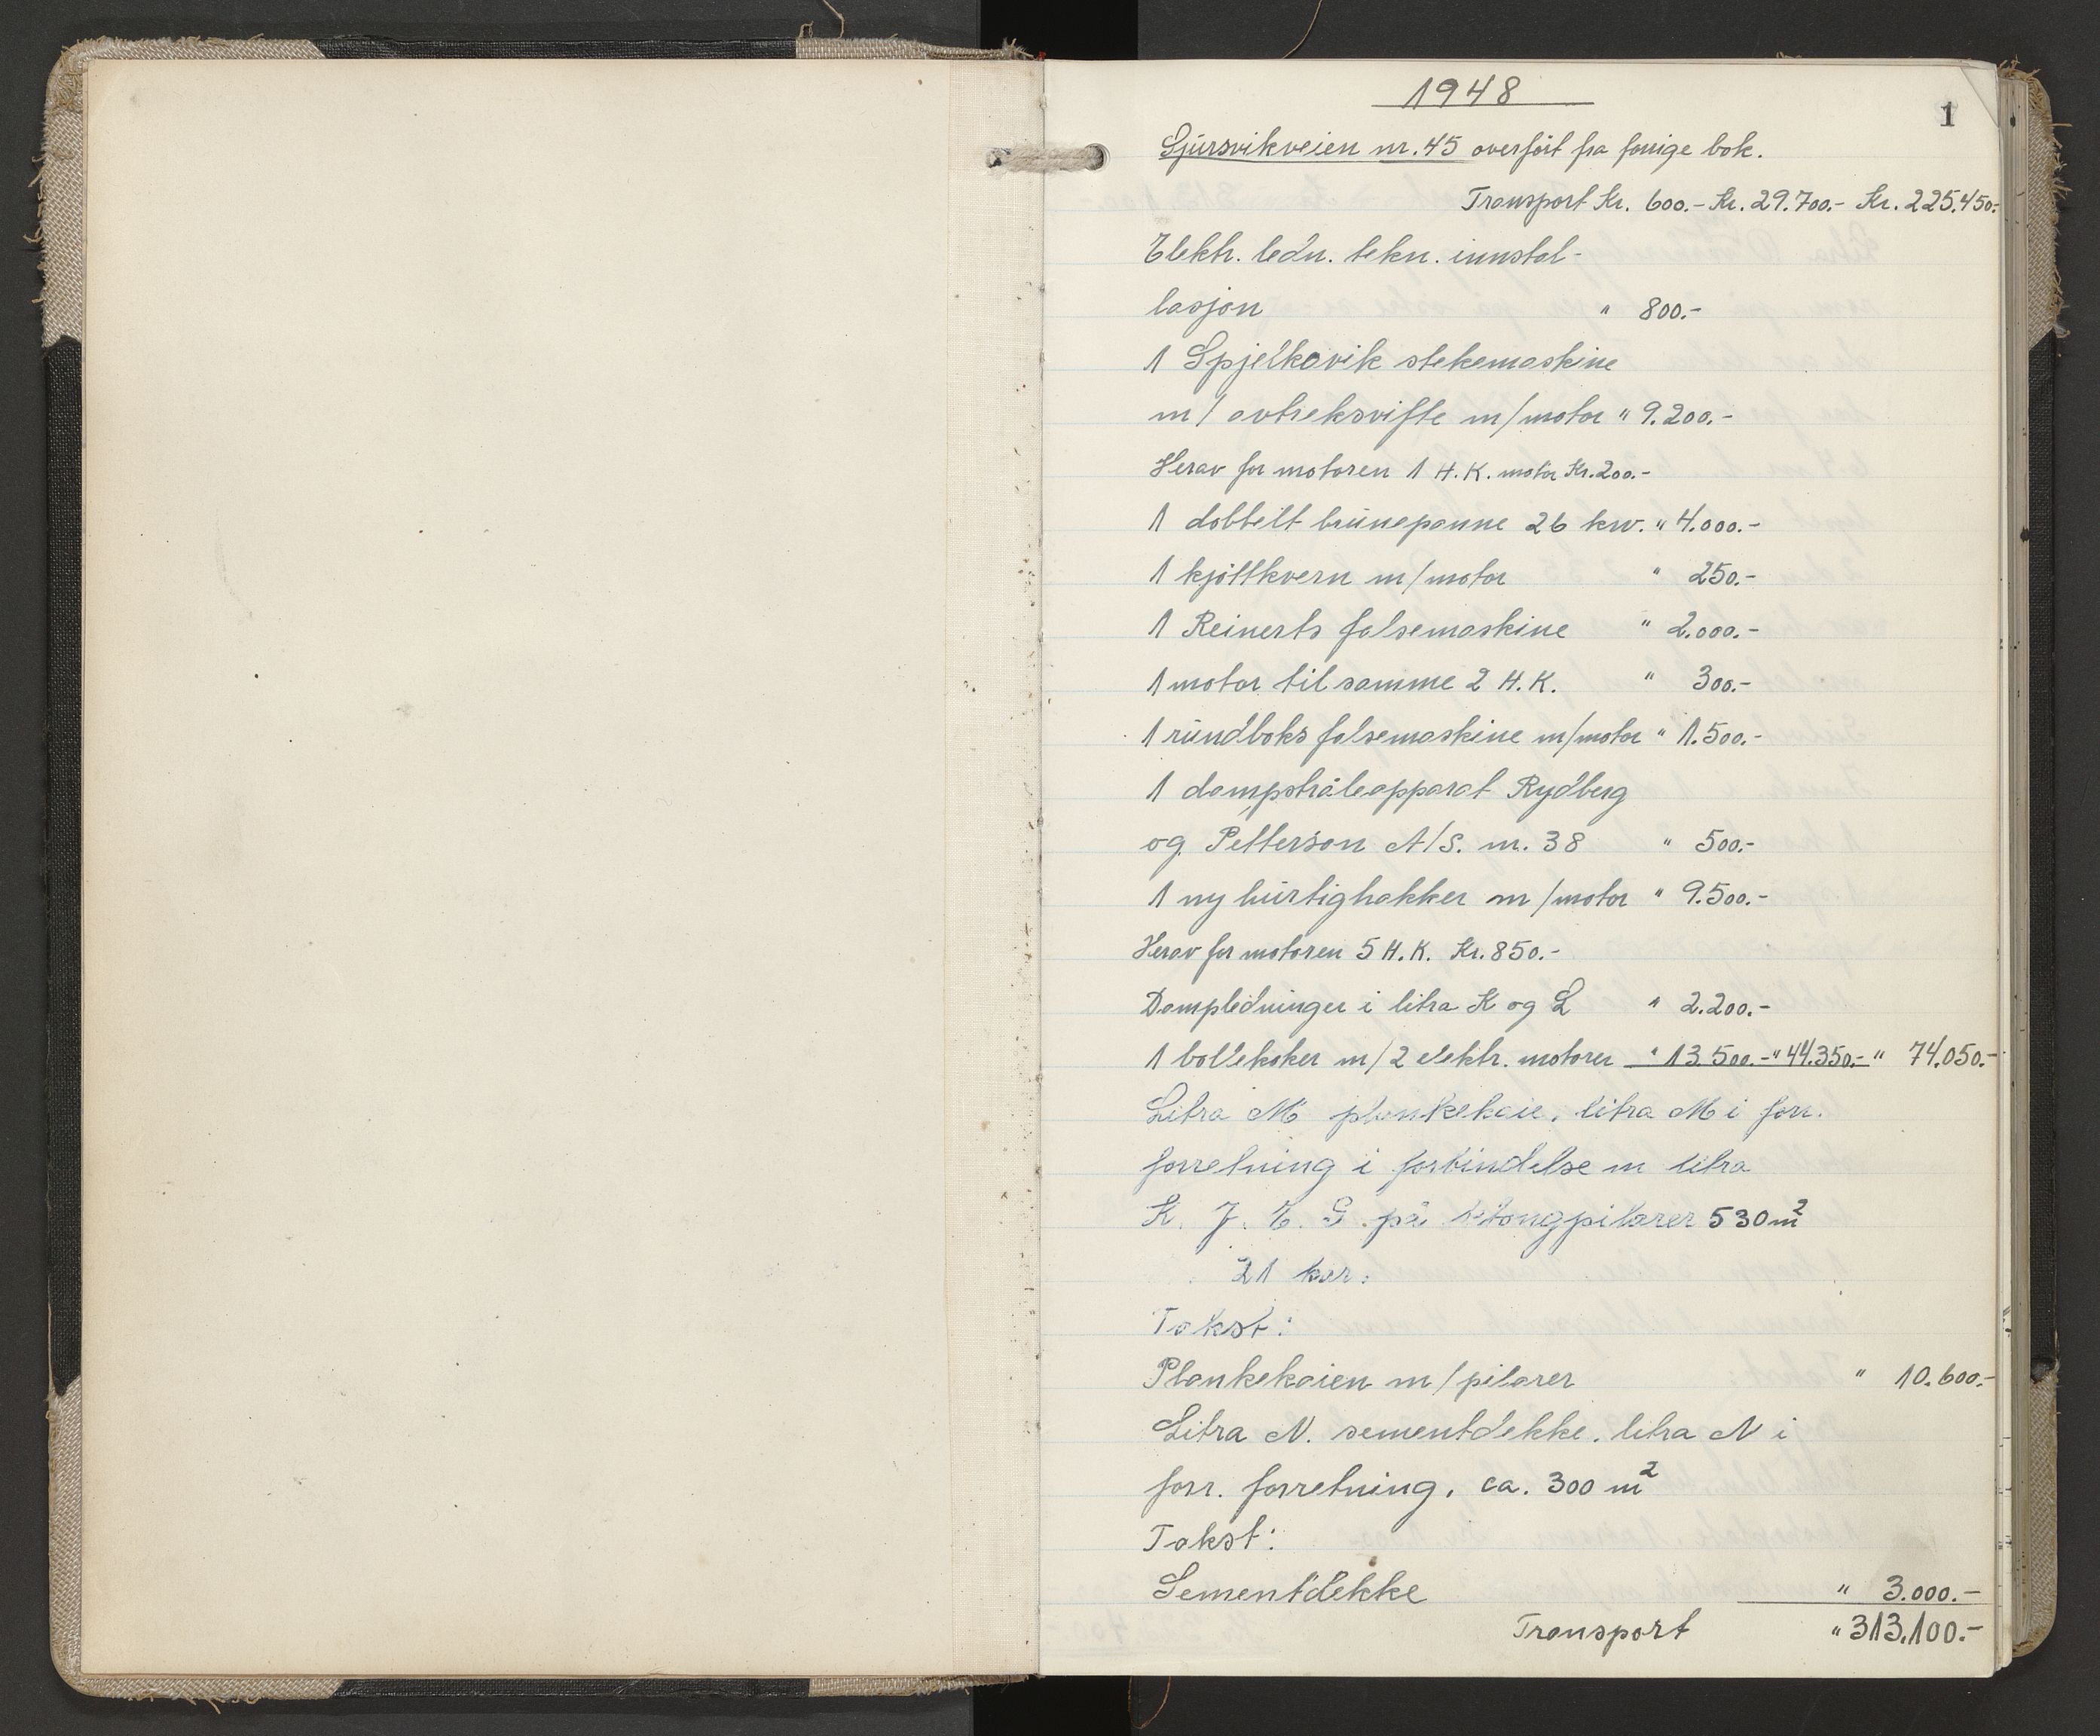 1948
1
Sjúrsvikveien nr. 45 overfört fra forrige bok.
Transport Kr. 600.- Kr. 29.700.- Kr. 225.450.-
Elektr. ledn. tekn. innstal-
lasjon " 800.-
1 Spjelkavik stekemaskine
m/ avtreksvifte m/motor " 9.200.-
Herav for motoren 1 H.K. motor Kr. 200.-
1 dobbelt brúnepanne 26 kw. " 4.000.-
1 kjöttkvern m/motor " 250.-
1 Reinerts falsemaskine " 2.000.-
1 motor til samme 2 H.K. " 300.-
1 rúndboks falsemaskine m/motor " 1.500.-
1 dampstråleapparat Rydberg
og Petterson A/S. nr. 38 " 500.-
1 ny húrtighakker m/motor " 9.500.-
Herav for motoren 5 H.K. Kr. 850.-
Dampledninger i litra K og L " 2.200.-
1 bollekoker m/2 elektr. motorer " 13.500.- " 44.350.- " 74.050.-
Litra M plankekaie, litra M i forr.
forretning i forbindelse m litra
K. J. E. G. på betongpilarer 530 m²
21 kar.
Takst:
Plankekaien m/pilarer " 10.600.-
Litra N. sementdekke. litra N i
forr. forretning, ca. 300 m²
Takst:
Sementdekke " 3.000.-
Transport " 313.100.-